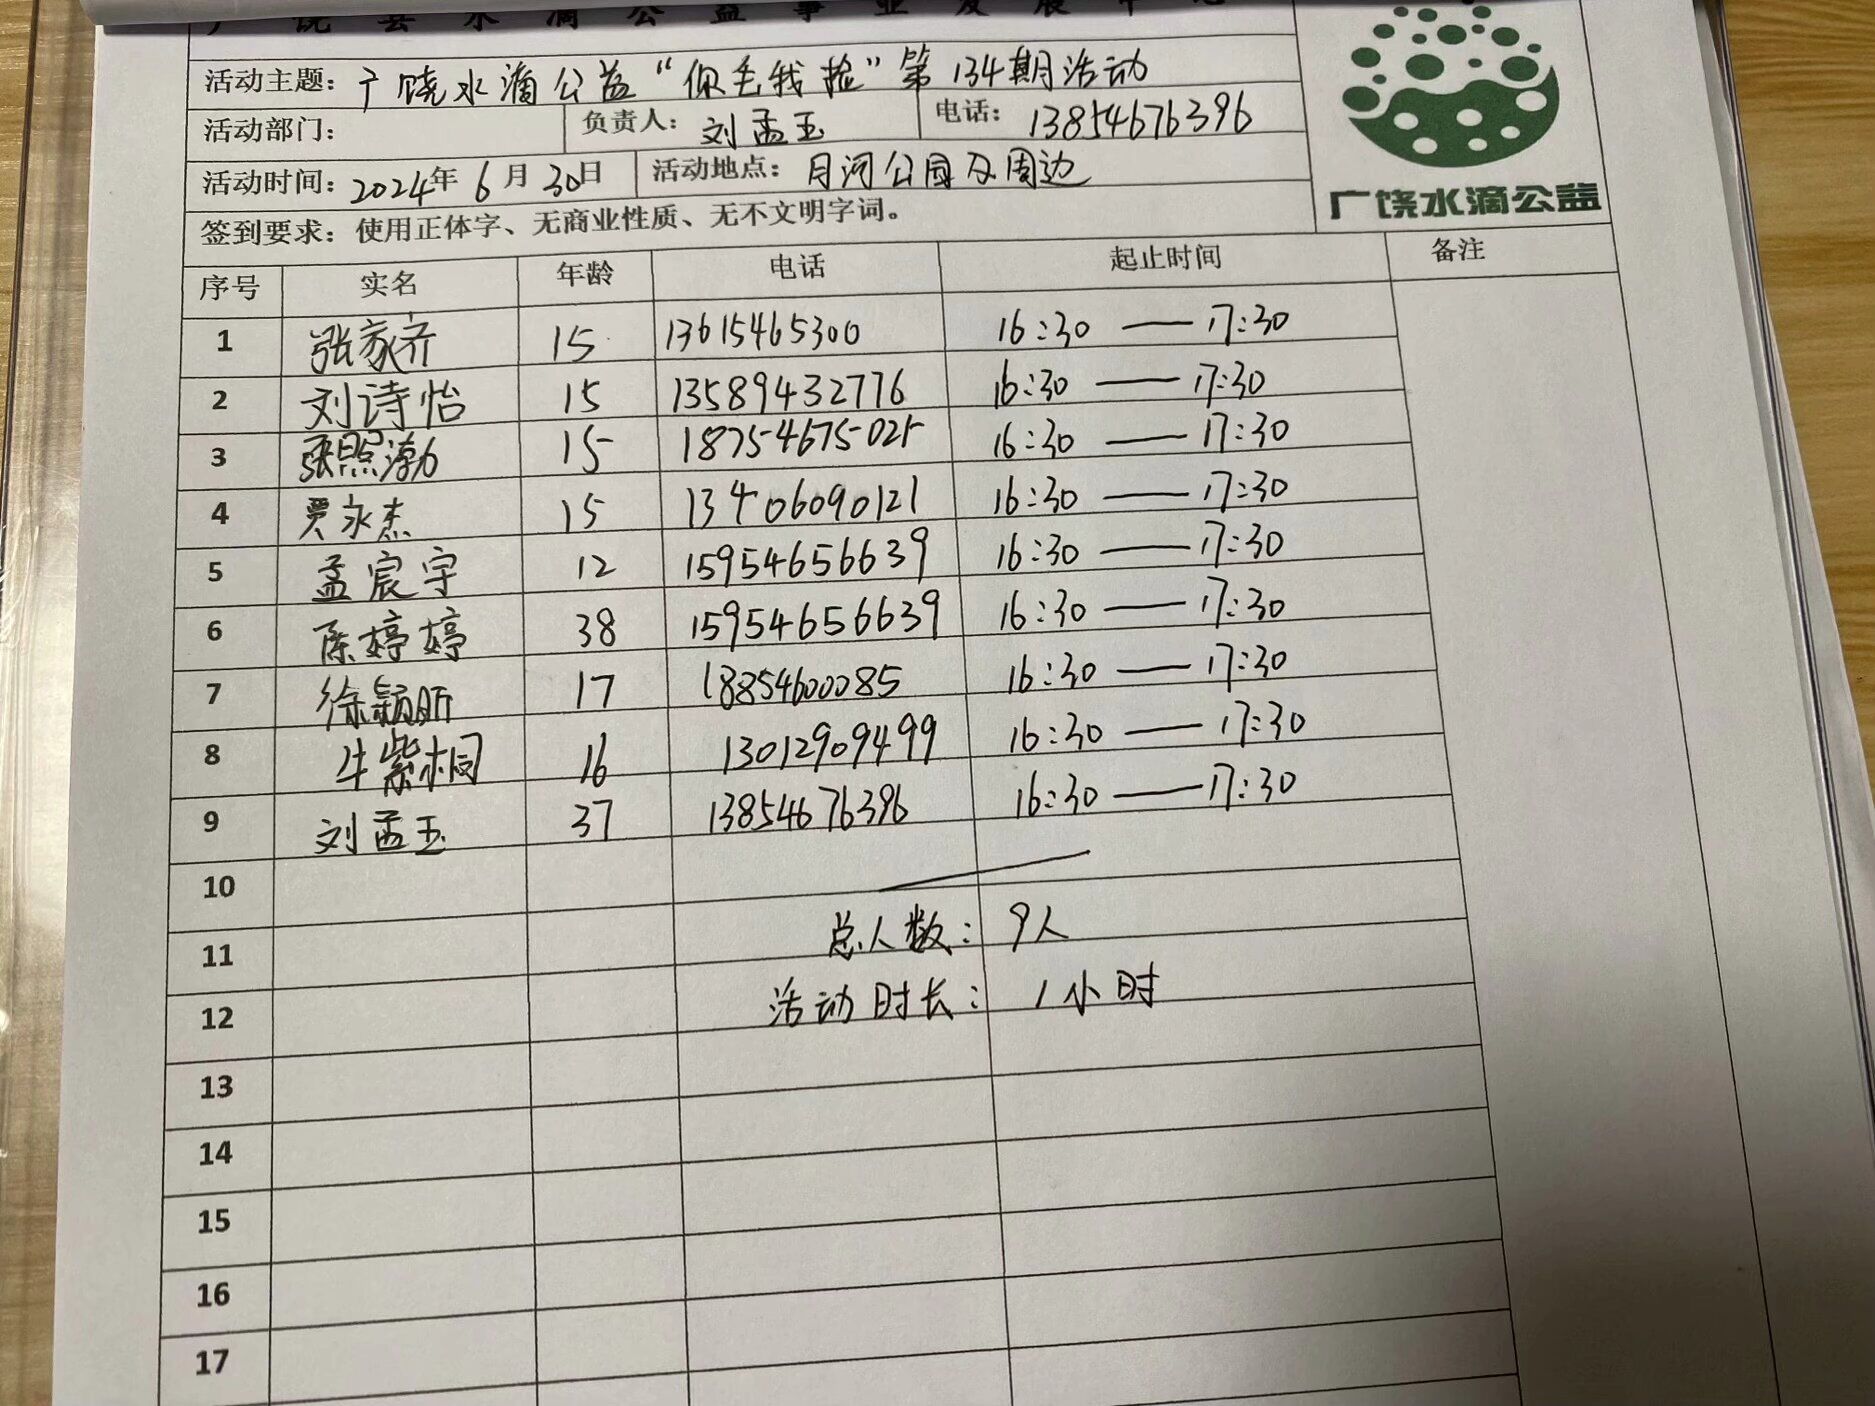 广饶县水滴公益事业发展中心
活动主题：广饶水滴公益“你丢我捡”第134期活动
活动部门： 负责人：刘孟玉 电话：13854676396
活动时间：2024年6月30日 活动地点：月河公园及周边
签到要求：使用正体字、无商业性质、无不文明字词。
广饶水滴公益
序号 实名 年龄 电话 起止时间 备注
1 张家齐 15 13615465300 16:30——17:30
2 刘诗怡 15 13589432776 16:30——17:30
3 张照渤 15 18754675025 16:30——17:30
4 贾永杰 15 13406090121 16:30——17:30
5 孟宸宇 12 15954656639 16:30——17:30
6 陈婷婷 38 15954656639 16:30——17:30
7 徐颖昕 17 18854600085 16:30——17:30
8 牛紫桐 16 13012909499 16:30——17:30
9 刘孟玉 37 13854676396 16:30——17:30
10
11 总人数：9人
12 活动时长：1小时
13
14
15
16
17